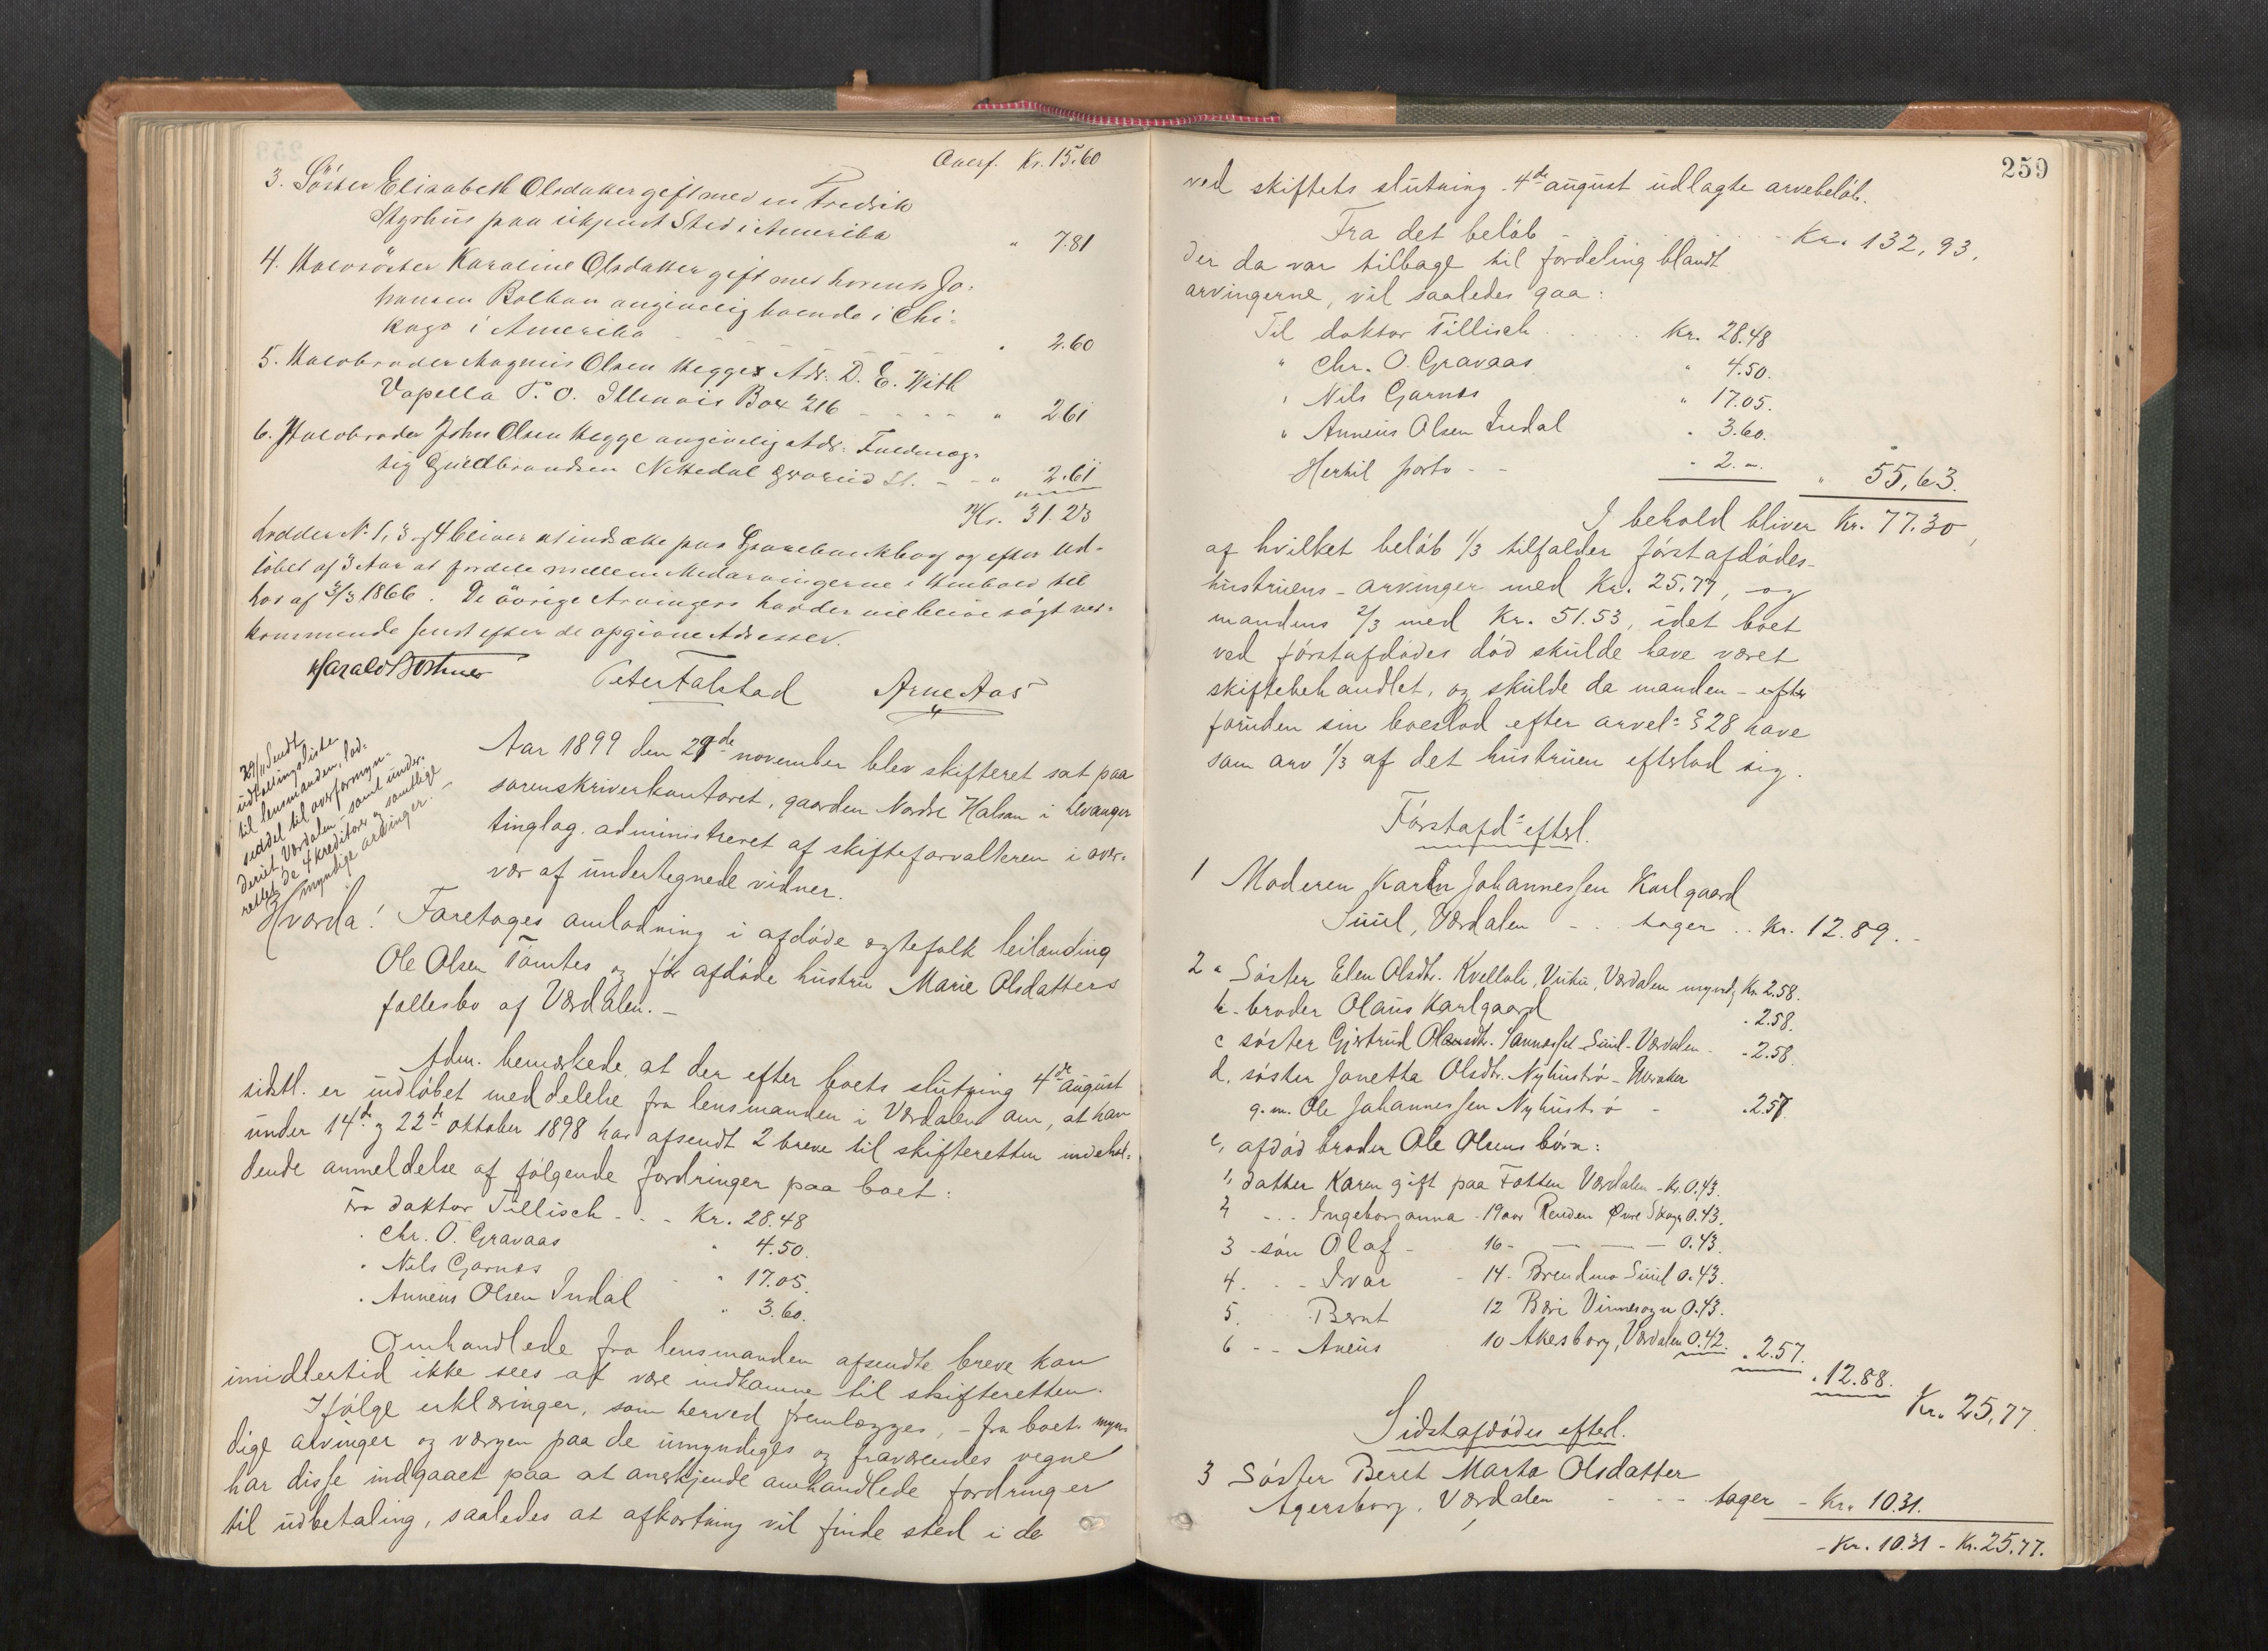 Overf. Kr. 15.60
3. Söster Elisabeth Olsdatter gift med en Fredrik
paa ukjendt Sted i Amerika " 7.81
4. Halvsöster Karoline Olsdatter gift med Lorents Jo-
hansen Balhau angivelig boende i Chi-
kago i Amerika - - - - - - " 2.60
5. Halvbroder Magnus Olsen Hegge Adr. D. E. With
Vapella P. O. Illinois Box 216 - - - - " 2.61
6. Halvbroder John Olsen Hegge angivelig Adr. Fuldmæg-
tig Guldbrandsen Nittedal St. - - " 2.61
Kr. 31.23
Lodder No. 1, 3 og 4 bliver at indsætte paa Sparebankbog og efter Ud-
löbet af 3 Aar at fordele mellem Medarvingerne i Henhold til
Lov af 3/3 1866. De övrige Arvingers Lodder vil blive sögt ved-
kommende sendt efter de opgivne Adresser.
Harald Bothner Peter Falstad Arne Aas
29/11 Sendt
udlodningsliste
til lensmanden, lod-
seddel til overformyn-
deriet Værdalen - samt under-
rettet de 4 kreditorer og samtlige
myndige arvinger. -
Aar 1899 den 29de november blev skifteret sat paa
sorenskriverkontoret, gaarden Nordre Halsan i Levanger
tinglag, administreret af skifteforvalteren i over-
vær af undertegnede vidner.
Hvorda! Foretoges omlodning i afdöde ægtefolk leilænding
Ole Olsen Tömtes og för afdöde hustru Marie Olsdatters
fællesbo af Værdalen. -
Adm. bemærkede, at der efter boets slutning 4de august
sidstl. er indløbet meddelelse fra lensmanden i Værdalen om, at han
under 14de og 22de oktober 1898 har afsendt 2 breve til skifteretten indehol-
dende anmeldelse af fölgende fordringer paa boet:
Fra doktor Tillisch - . - Kr. 28.48
" Chr. O. Gravaas " 4.50.
" Nils Garnæs " 17.05.
" Anneus Olsen Indal " 3.60.
Omhandlede fra lensmanden afsendte breve kan
imidlertid ikke sees at være indkomne til skifteretten.
Ifölge erklæringer, som herved fremlægges, - fra boets myn-
dige arvinger og værgen paa de umyndiges og fraværendes vegne
har disse indgaaet paa at anerkjende omhandlede fordringer
til udbetaling, saaledes at afkortning vil finde sted i de
259
ved skiftets slutning 4de august udlagte arvebelöb.
Fra det belöb - - - Kr. 132,93,
der da var tilbage til fordeling blandt
arvingerne, vil saaledes gaa:
Til doktor Tillisch . . . . Kr. 28.48
" Chr. O. Gravaas " 4.50.
" Nils Garnæs " 17.05.
" Anneus Olsen Indal " 3.60.
Hertil porto - - " 2. " " 55,63.
I behold bliver Kr. 77.30,
af hvilket belöb 1/3 tilfalder förstafdödes-
hustruens - arvinger med Kr. 25.77, og
mandens 2/3 med Kr. 51.53, idet boet
ved förstafdödes död skulde have været
skiftebehandlet, og skulde da manden - efter
foruden sin boeslod efter arvel: § 28 have
som arv 1/3 af det hustruen efterlod sig.
Förstafd: efterl.
1 Moderen Karen Johannessen Karlgaard
Suul, Værdalen - . . tager . . Kr. 12.89. -
2 a Söster Elen Olsdtr. Kvelloli, Vuku, Værdalen myndg Kr. 2.58.
b - broder Olaus Karlgaard - 2.58.
c söster Gjertrud Olausdtr. Sannæsset Suul - Værdalen - - 2.58.
d. söster Janetta Olsdtr. Nyhuströ - Meraker
g. m. Ole Johannessen Nyhuströ - - 2.57.
e, afdöd broder Ole Olsens börn:
1, datter Karen gift paa Fætten Værdalen - Kr. 0.43.
2 - . . Ingeboranna - 19 aar Øvre Skogn 0.43.
3 - sön Olaf - 16 - — — — 0.43.
4. - - Ivar - 14 - Brendmo Suul 0.43.
5. Bernt 12 Vinnesogn 0.43.
6 - - Aneus 10 Akesborg, Værdalen 0.42. - 2.57.
" 12.88.
Kr. 25,77.
Sidstafdödes efterl.
3 Söster Beret Marta Olsdatter
Agersborg, Værdalen - - - tager - Kr. 10.31.
- Kr. 10.31 - Kr. 25.77.